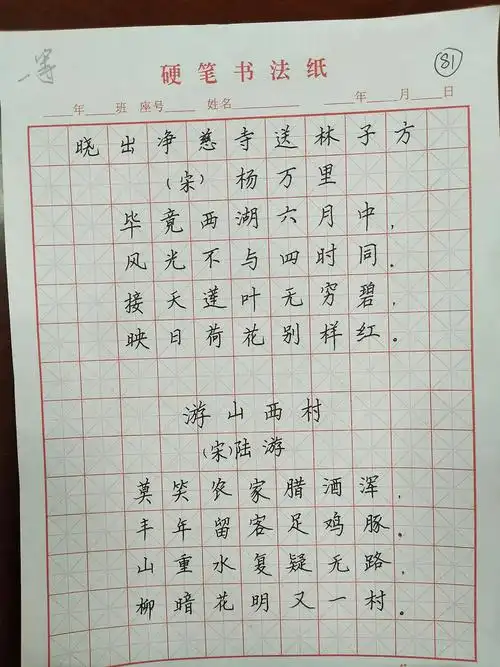 一等
81
硬笔书法纸
年 班 座号 姓名 年 月 日
晓出净慈寺送林子方
(宋) 杨万里
毕竟西湖六月中,
风光不与四时同。
接天莲叶无穷碧,
映日荷花别样红。
游山西村
(宋)陆游
莫笑农家腊酒浑,
丰年留客足鸡豚。
山重水复疑无路,
柳暗花明又一村。